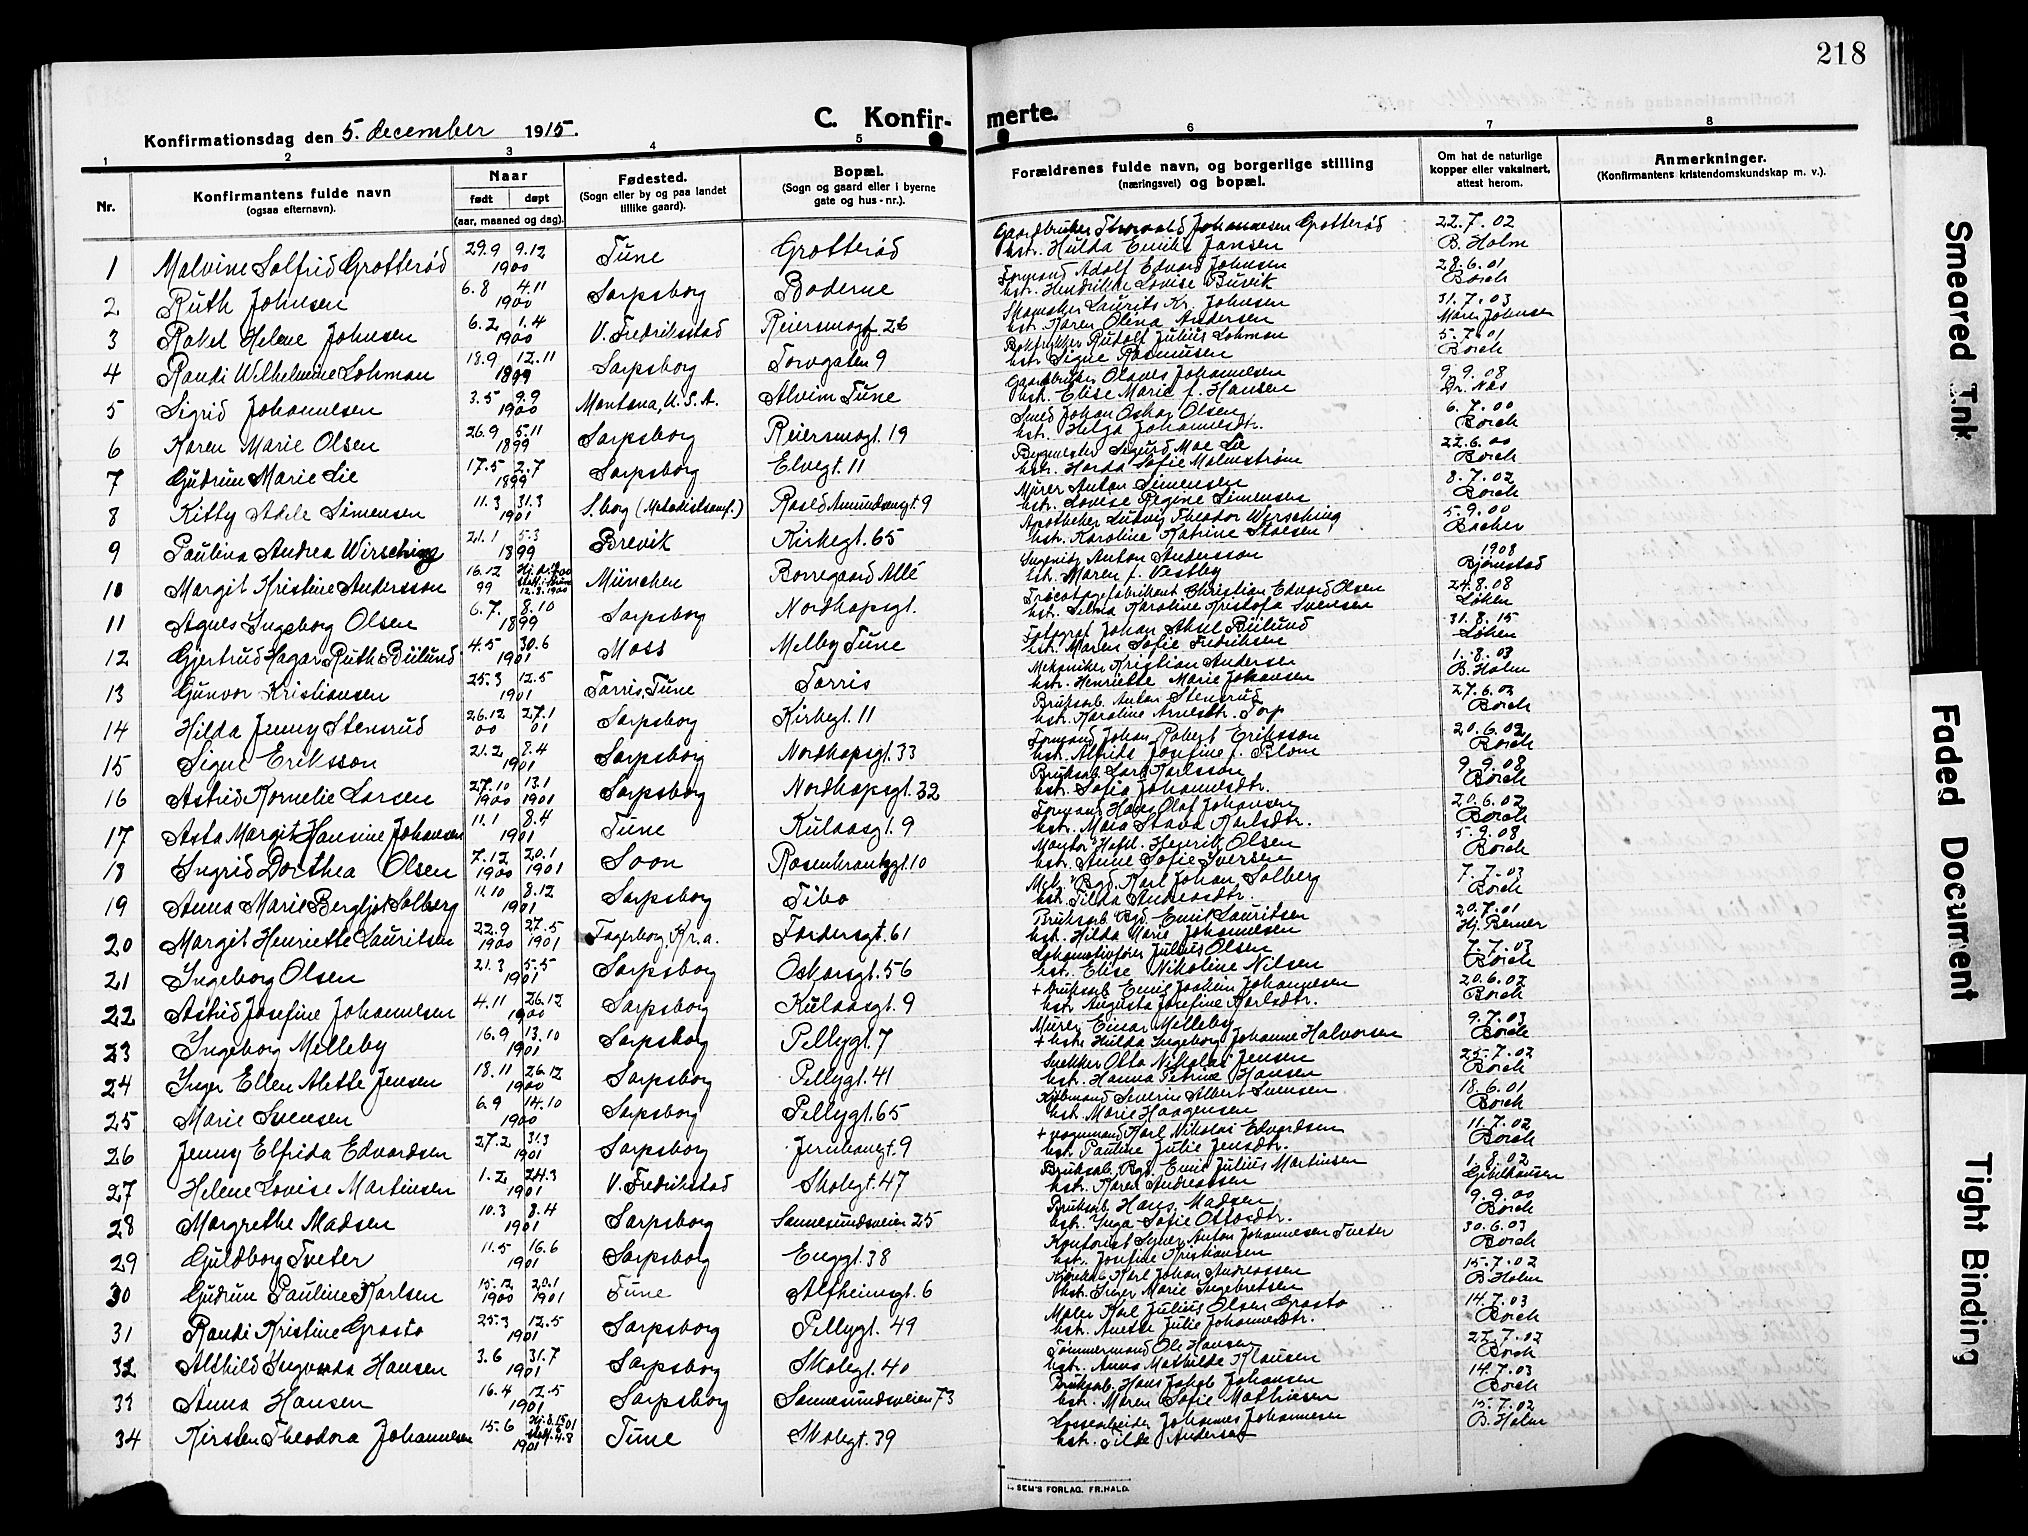 218
C. Konfirmerte.
Konfirmationsdag den 5. december 1915.
1 2 3 4 5 6 7 8
Nr.
Konfirmantens fulde navn
(ogsaa efternavn).
Naar
født døpt
(aar, maaned og dag).
Fødested.
(Sogn eller by og paa landet
tillike gaard).
Bopæl.
(Sogn og gaard eller i byerne
gate og hus-nr.).
Forældrenes fulde navn, og borgerlige stilling
(næringsvei) og bopæl.
Om hat de naturlige
kopper eller vaksinert,
attest herom.
Anmerkninger.
(Konfirmantens kristendomskundskap m. v.).
1 Malvine Solfrid Grotterød 29.9 9.12 1900 Tune Grotterød Gaardbruker Thorvald Johannesen Grotterød hstr. Hilda Emilie Jansen 22.7.02 B. Holm
2 Ruth Johnsen 6.8 4.11 1900 Sarpsborg Boderne Formand Adolf Edvard Johnsen hstr. Hendrikke Lovise Busvik 28.6.01 Borch
3 Rakel Helene Johnsen 6.2 1.4 1900 V. Fredriksstad Reiersmogt. 26 Skomaker Laurits Kr. Johnsen hstr. Karen Olena Andersen 31.7.03 Maren Johnsen
4 Randi Wilhelmine Lohman 18.9 12.11 1899 Sarpsborg Torvgaten 9 Boktrykker Rudolf Julius Lohman hstr. Signe Rasmusen 5.7.01 Borch
5 Sigrid Johannesen 3.5 9.9 1900 Montana, U.S.A. Alvim Tune Gaardbruker Olaves Johannesen hstr. Elise Marie f. Hansen 9.9.08 Dr. Nås
6 Karen Marie Olsen 26.9 5.11 1899 Sarpsborg Reiersmogt. 19 Smed Johan Oskar Olsen hstr. Helga Johannesdtr. 6.7.00 Borch
7 Gudrun Marie Lie 17.5 2.7 1899 Sarpsborg Elvegt. 11 Bygmester Sigurd Moe Lie hstr. Harda Sofie Malmstrøm 22.6.00 Borch
8 Kitty Adele Simensen 11.3 31.3 1901 S.borg (Metodistsamf.) Roald Amundsensgt. 9 Murer Anton Simensen hstr. Lovise Regine Simensen 8.7.02 Borch
9 Paulina Andrea Wirsching 21.1 5.3 1899 Brevik Kirkegt. 65 Apotheker Ludvig Theodor Wirsching hstr. Karoline Katrine Stoesen 5.9.00 Backer
10 Margit Kristine Andersson 16.12 99 12.8.1900 München Borregaard Allé Ingeniør Anton Andersson hstr. Maren f. Vestby 1908 Bjørnstad
11 Agnes Ingeborg Olsen 6.7. 8.10 1899 Sarpsborg Nordkapsgt. Trikotagefabrikant Christian Edvard Olsen hstr. Selma Karoline Kristofa Svensen 24.8.08 Løken
12 Gjertrud Hagar Ruth Biilund 4.5 30.6 1901 Moss Melby Tune Fotograf Johan Aksel Biilund hstr. Maren Sofie Fredriksen 31.8.15 Løken
13 Gunvor Kristiansen 25.3 12.5 1901 Torris, Tune Torris Mekaniker Kristian Andersen hstr. Henriette Marie Johansen 1.8.03 B. Holm
14 Hilda Jenny Stensrud 26.12 00 27.1 01 Sarpsborg Kirkegt. 11 Bruksarb. Anton Stensrud hstr. Karoline Arnesdtr. Torp 27.6.02 Borch
15 Signe Eriksson 21.2 8.4 1901 Sarpsborg Nordkapsgt. 33 Formand Johan Robert Eriksson hstr. Alfrida Josefine f. Blom 20.6.02 Borch
16 Astrid Kornelie Larsen 27.10 1900 13.1 1901 Sarpsborg Nordkapsgt. 32 Bruksarb. Lars Karlsson hstr. Sofia Johannesdtr. 9.9.08 Borch
17 Asta Margit Hansine Johansen 11.1 8.4 1901 Tune Kulaasgt. 9 Formand Hans Olaf Johansen hstr. Maia Stava Karlsdtr. 20.6.02 Borch
18 Ingrid Dorthea Olsen 7.12 1900 20.1 1901 Soon Rosenkrantzgt. 10 Montør Hafsl. Henrik Olsen hstr. Anne Sofie Iversen 5.9.08 Borch
19 Anna Marie Bergljot Solberg 11.10 8.12 1901 Sarpsborg Tibo Mek. Bgd. Karl Johan Solberg hstr. Tilda Andreasdtr. 7.7.03 Borch
20 Margit Henriette Lauritsen 22.9 1900 27.5 1901 Fagerborg, Kr.a. Fordersgt. 61 Bruksarb. Bgd. Emil Lauritsen hstr. Hilda Marie Johannesen 20.7.01 Hj. Berner
21 Ingeborg Olsen 21.3 5.5 1901 Sarpsborg Oskarsgt. 56 Lokomotivfører Julius Olsen hstr. Elise Nikoline Nilsen 7.7.03 Borch
22 Astrid Josefine Johannesen 4.11 26.12 1900 Sarpsborg Kulaasgt. 9 + Bruksarb. Emil Joakim Johannesen hstr. Augusta Josefine Karlsdtr. 20.6.02 Borch
23 Ingeborg Melleby 16.9 13.10 1901 Sarpsborg Pellygt. 7 Murer Einar Melleby + hstr. Hulda Ingeborg Johanne Halvorsen 9.7.03 Borch
24 Inger Ellen Alette Jensen 18.11 26.12 1900 Sarpsborg Pellygt. 41 Snekker Otto Nikolai Jensen hstr. Hanna Petrine Hansen 25.7.02 Borch
25 Marie Svensen 6.9 14.10 1900 Sarpsborg Pellygt. 65 Kjømand Severin Albert Svensen hstr. Marie Haagensen 18.6.01 Borch
26 Jenny Elfrida Edvardsen 27.2 31.3 1901 Sarpsborg Jernbanegt. 9 + Vognmand Karl Nikolai Edvardsen hstr. Pauline Julie Jensdtr. 11.7.02 Borch
27 Helene Lovise Martinsen 1.2 24.3 1901 V. Fredrikstad Skolegt. 47 Bruksarb. Bgd. Emil Julius Martinsen hstr. Karen Andreassen 1.8.02 Gibelhausen
28 Margrethe Madsen 10.3 8.4 1901 Sarpsborg Sannesundsveien 25 Bruksarb. Hans Madsen hstr. Inga Sofie Ottosdtr. 9.9.00 Borch
29 Guldborg Tveter 11.5 16.6 1901 Sarpsborg Enggt. 38 Kontorist Syver Anton Johannesen Tveter hstr. Josefine Kristiansen 30.6.03 Borch
30 Gudrun Pauline Karlsen 15.12 1900 20.1 1901 Tune Alfheimsgt. 6 Karl Johan Andreassen hstr. Inger Marie Ingebretsen 15.7.02 B. Holm
31 Randi Kristine Grasto 25.3 12.5 1901 Sarpsborg Pellygt. 49 Maler Karl Julius Olsen Grasto hstr. Anette Julie Johannesdtr. 14.7.03 Borch
32 Althild Ingvarda Hansen 3.6 31.7 1901 Sarpsborg Skolegt. 40 Tømmermand Ole Hansen hstr. Anna Mathilde Klausen 22.7.02 Borch
33 Anna Hansen 16.4 12.5 1901 Sarpsborg Sannesundsveien 73 Bruksarb. Hans Jakob Johansen hstr. Maren Sofie Mathisen 14.7.03 Borch
34 Kirsten Theodora Johannesen 15.6 1901 Tune Skolegt. 39 Lossearbeider Johannes Johannesen hstr. Tilde Andersen 15.7.02 B. Holm
SEM'S FORLAG. FR.HALD.
Smeared Ink
Faded Document
Tight Binding